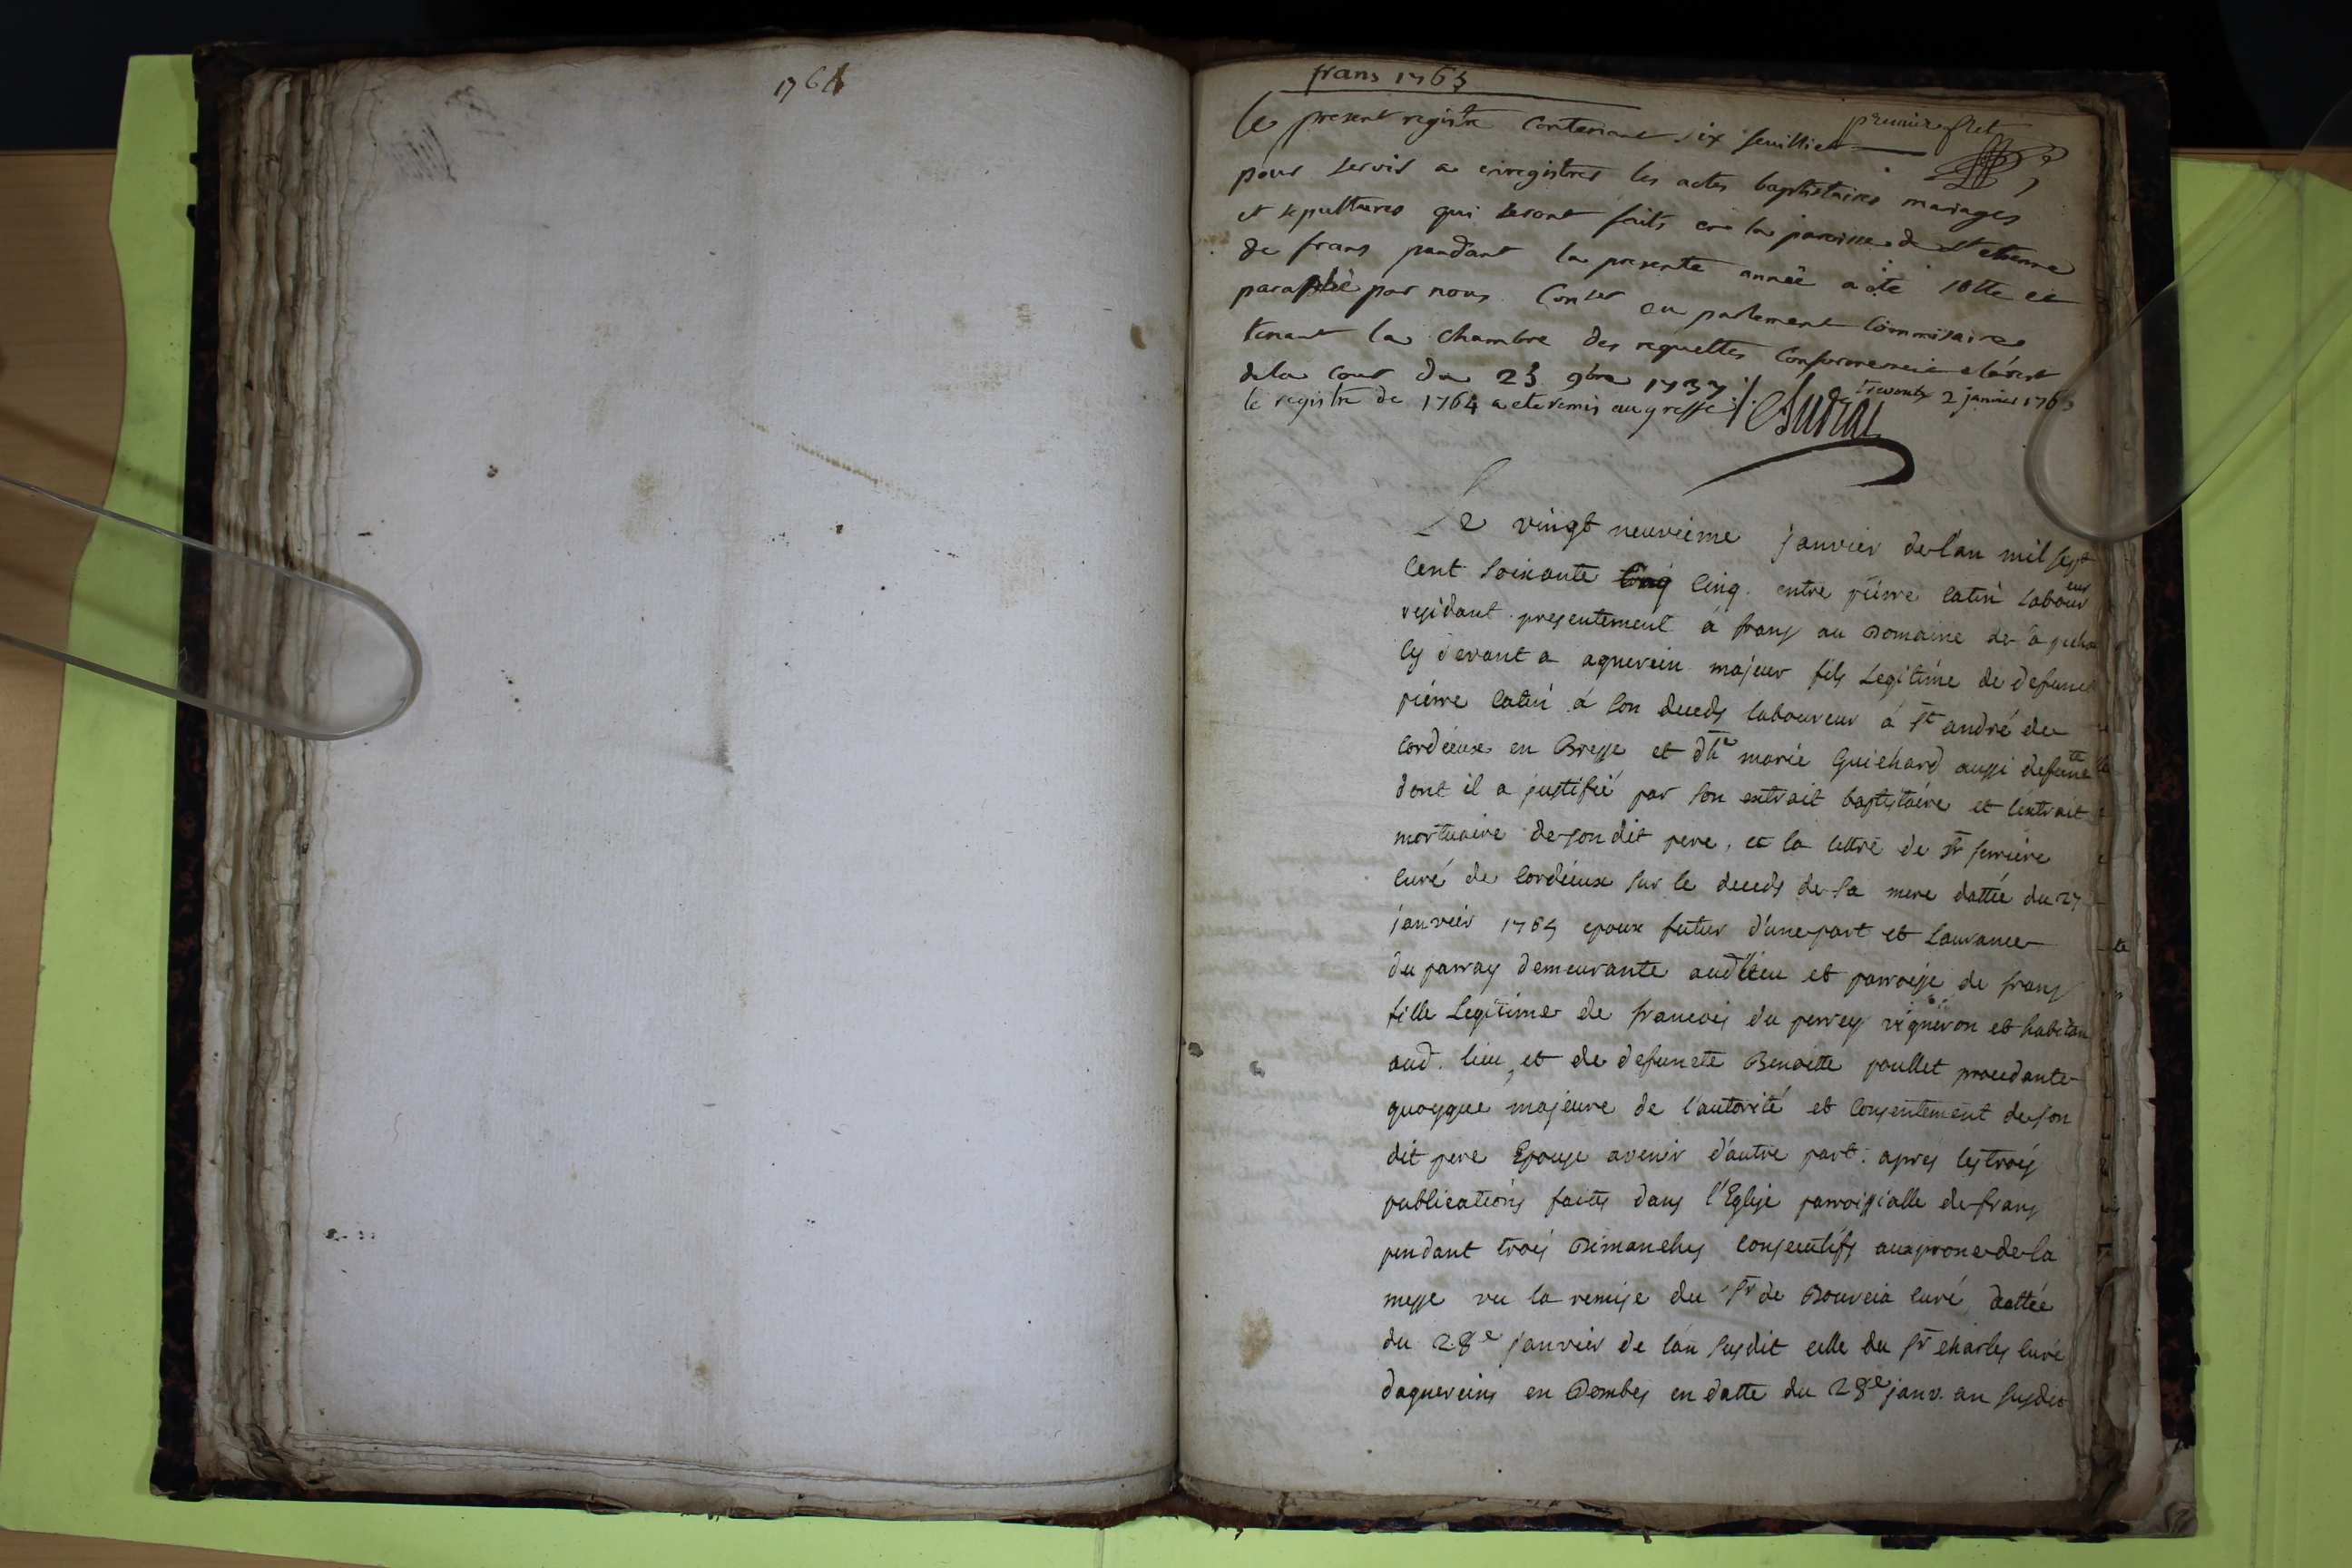 1764
frans 1765
premier flet
le present registre Contenant six feuillies
pour servir a enregistrer les actes baptistaires mariages
et sepultures qui seront faits en la paroisse de St etienne
de frans pandant la presente année a été cotte et
paraphé par nous Conser en parlement Commissaire
tenant la chambre des requettes Conformement a l'arest
de la cour du 23 9bre 1737 ./. Trevoux 2 janvier 1765
le registre de 1764 a ete remis au greffe ./.
Le vingt neuvieme janvier de l'an mil sept
cent soixante cinq cinq. entre pierre catin laboureur
residant presentement á frans au Domaine de
cy devant a aguerein majeur fils Legitime de defunct
pierre catin á son deceds laboureur á St andré de
cordieux en Bresse et dlle marie Guichard aussi defuncte
dont il a justifié par son extrait baptistaire et l'extrait
mortuaire de son dit pere, et la lettre de Sr ferriere
curé de Cordieux sur le deceds de sa mere dattée du 27
janvier 1765 epoux futur d'une part et Laurance
du parray demeurante aud lieu et parroisse de frans
fille Legitime de francois du perrey vigneron et habitan
aud. lieu, et de defuncte Benoitte poullet procedante
quoyque majeure de l'autorité et consentement de son
dit pere Epouse avenir d'autre part. apres les trois
publications faites dans l'Eglise parroissialle de frans
pendant trois Dimanches consecutifs aux prone de la
messe vu la remise du Sr de Bouveia curé dattée
du 28e janvier de l'an susdit celle du Sr charles curé
d'aguereins en Dombes en datte du 28e janv. an susdit